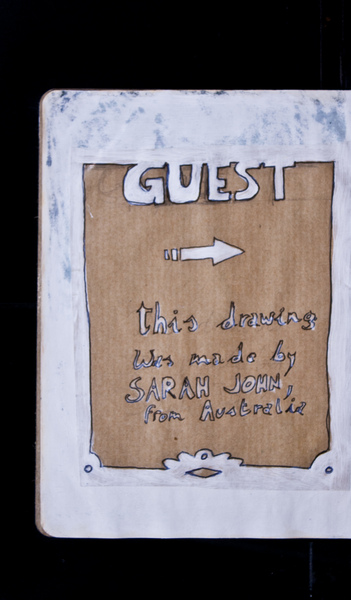 GUEST
this drawing
was made by
SARAH JOHN,
from Australia